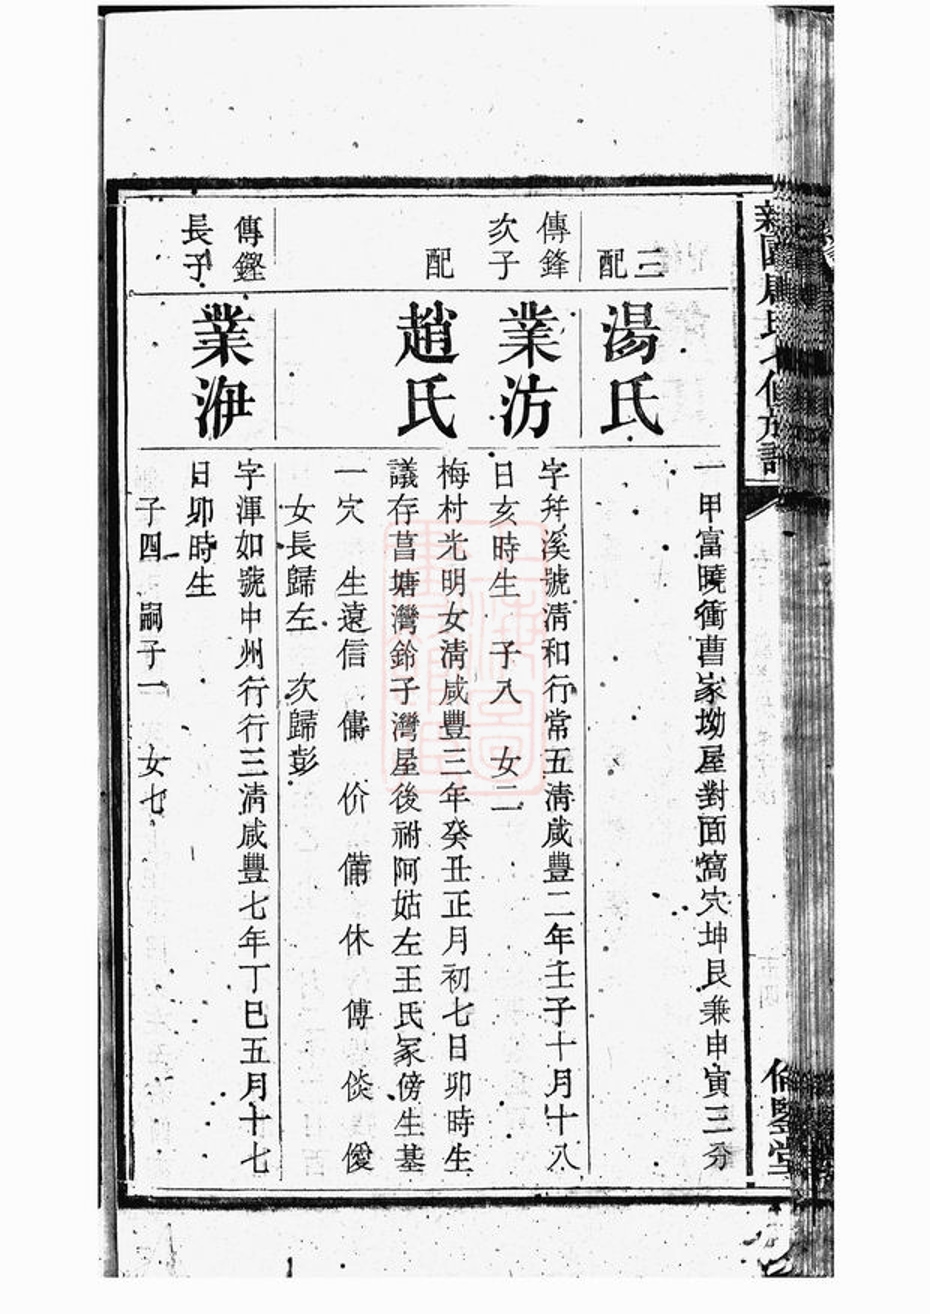 一甲富曉衝曹家坳屋對面窩穴坤艮兼申寅三分
三配
湯氏
傳鋒次子
業汸
字茾溪號清和行常五清咸豐二年壬子十月十八
日亥時生 子八 女二
配
趙氏
梅村光明女清咸豐三年癸丑正月初七日卯時生
議存菖塘灣鈴子灣屋後祔阿姑左王氏冢傍生基
一穴 生遠信 傋 价 備 休 傅 倓 優
女長歸左 次歸彭
傳鏗長子
業洢
字渾如號申州行行三清咸豐七年丁巳五月十七
日卯時生
子四 嗣子一 女七